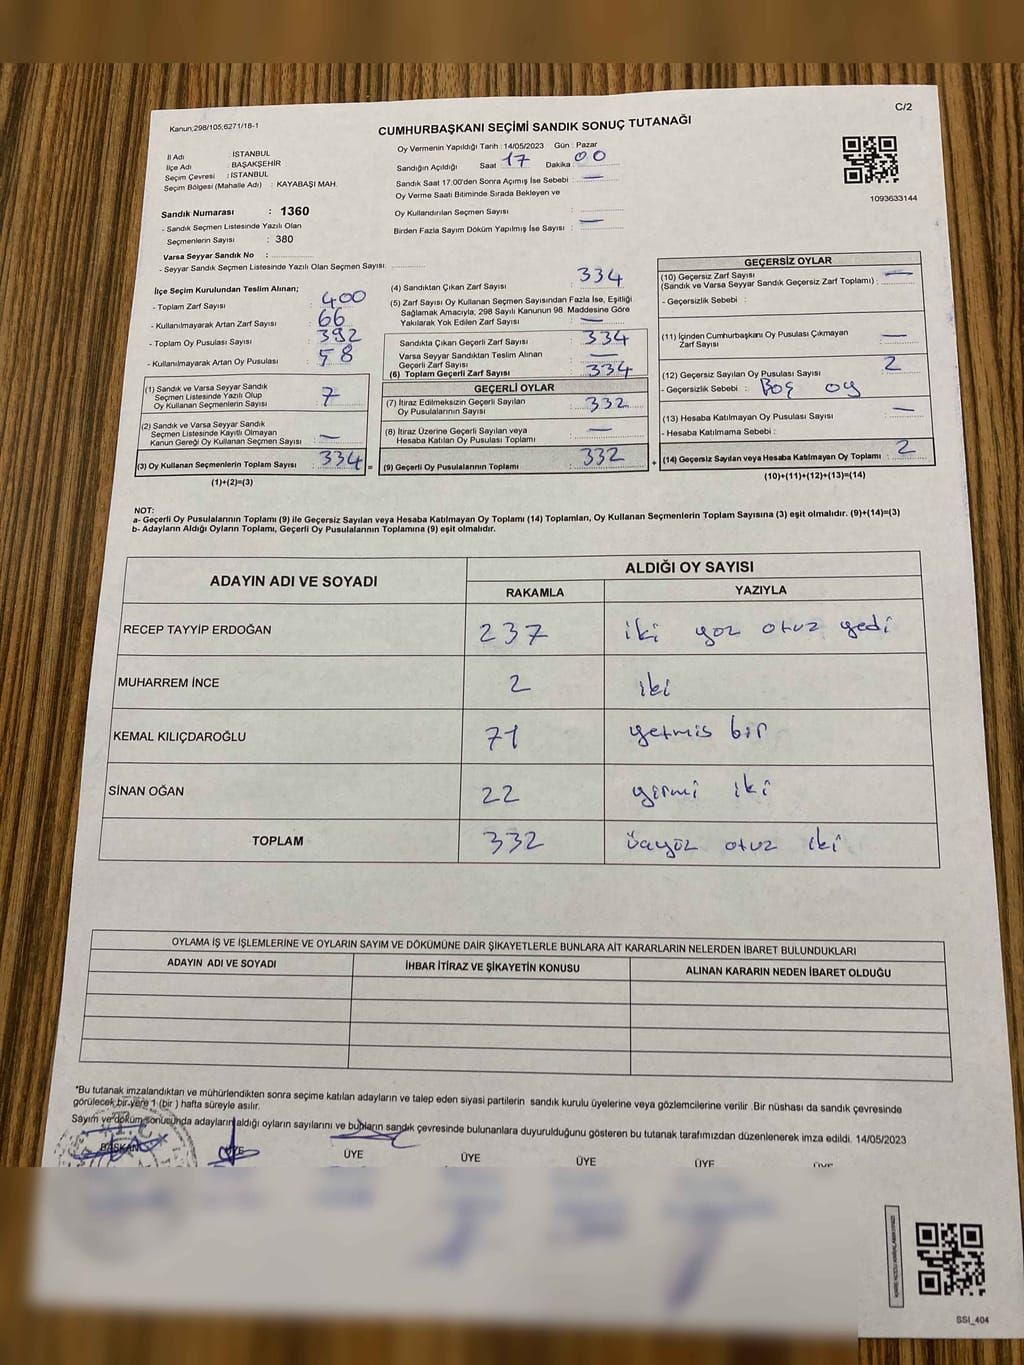 Kanun;298/105;6271/18-1
C/2
CUMHURBAŞKANI SEÇİMİ SANDIK SONUÇ TUTANAĞI
İl Adı : İSTANBUL
İlçe Adı : BAŞAKŞEHİR
Seçim Çevresi : İSTANBUL
Seçim Bölgesi (Mahalle Adı) : KAYABAŞI MAH.
Sandık Numarası : 1360
- Sandık Seçmen Listesinde Yazılı Olan
Seçmenlerin Sayısı : 380
Varsa Seyyar Sandık No :
- Seyyar Sandık Seçmen Listesinde Yazılı Olan Seçmen Sayısı:
Oy Vermenin Yapıldığı Tarih : 14/05/2023 Gün : Pazar
Sandığın Açıldığı Saat : 17 Dakika : 00
Sandık Saat 17.00'den Sonra Açımış İse Sebebi : —
Oy Verme Saati Bitiminde Sırada Bekleyen ve
Oy Kullandırılan Seçmen Sayısı :
Birden Fazla Sayım Döküm Yapılmış İse Sayısı : —
1093633144
İlçe Seçim Kurulundan Teslim Alınan;
- Toplam Zarf Sayısı : 400
- Kullanılmayarak Artan Zarf Sayısı : 66
- Toplam Oy Pusulası Sayısı : 392
- Kullanılmayarak Artan Oy Pusulası : 58
(1) Sandık ve Varsa Seyyar Sandık
Seçmen Listesinde Yazılı Olup
Oy Kullanan Seçmenlerin Sayısı : 7
(2) Sandık ve Varsa Seyyar Sandık
Seçmen Listesinde Kayıtlı Olmayan
Kanun Gereği Oy Kullanan Seçmen Sayısı : —
(3) Oy Kullanan Seçmenlerin Toplam Sayısı : 334 =
(1)+(2)=(3)
(4) Sandıktan Çıkan Zarf Sayısı : 334
(5) Zarf Sayısı Oy Kullanan Seçmen Sayısından Fazla İse, Eşitliği
Sağlamak Amacıyla; 298 Sayılı Kanunun 98. Maddesine Göre
Yakılarak Yok Edilen Zarf Sayısı : —
Sandıkta Çıkan Geçerli Zarf Sayısı : 334
Varsa Seyyar Sandıktan Teslim Alınan
Geçerli Zarf Sayısı : —
(6) Toplam Geçerli Zarf Sayısı : 334
GEÇERLİ OYLAR
(7) İtiraz Edilmeksizin Geçerli Sayılan
Oy Pusulalarının Sayısı : 332
(8) İtiraz Üzerine Geçerli Sayılan veya
Hesaba Katılan Oy Pusulası Toplamı : —
(9) Geçerli Oy Pusulalarının Toplamı : 332 +
GEÇERSİZ OYLAR
(10) Geçersiz Zarf Sayısı
(Sandık ve Varsa Seyyar Sandık Geçersiz Zarf Toplamı) : —
- Geçersizlik Sebebi :
(11) İçinden Cumhurbaşkanı Oy Pusulası Çıkmayan
Zarf Sayısı : —
(12) Geçersiz Sayılan Oy Pusulası Sayısı : 2
- Geçersizlik Sebebi : Boş oy
(13) Hesaba Katılmayan Oy Pusulası Sayısı : —
- Hesaba Katılmama Sebebi :
(14) Geçersiz Sayılan veya Hesaba Katılmayan Oy Toplamı : 2
(10)+(11)+(12)+(13)=(14)
NOT:
a- Geçerli Oy Pusulalarının Toplamı (9) ile Geçersiz Sayılan veya Hesaba Katılmayan Oy Toplamı (14) Toplamları, Oy Kullanan Seçmenlerin Toplam Sayısına (3) eşit olmalıdır. (9)+(14)=(3)
b- Adayların Aldığı Oyların Toplamı, Geçerli Oy Pusulalarının Toplamına (9) eşit olmalıdır.
ADAYIN ADI VE SOYADI
ALDIĞI OY SAYISI
RAKAMLA YAZIYLA
RECEP TAYYİP ERDOĞAN 237 iki yöz otuz yedi
MUHARREM İNCE 2 iki
KEMAL KILIÇDAROĞLU 71 yetmis bir
SİNAN OĞAN 22 yirmi iki
TOPLAM 332 üçyöz otuz iki
OYLAMA İŞ VE İŞLEMLERİNE VE OYLARIN SAYIM VE DÖKÜMÜNE DAİR ŞİKAYETLERLE BUNLARA AİT KARARLARIN NELERDEN İBARET BULUNDUKLARI
ADAYIN ADI VE SOYADI İHBAR İTİRAZ VE ŞİKAYETİN KONUSU ALINAN KARARIN NEDEN İBARET OLDUĞU
*Bu tutanak imzalandıktan ve mühürlendikten sonra seçime katılan adayların ve talep eden siyasi partilerin sandık kurulu üyelerine veya gözlemcilerine verilir .Bir nüshası da sandık çevresinde
görülecek bir yere 1 (bir ) hafta süreyle asılır.
Sayım ve döküm sonucunda adayların aldığı oyların sayılarını ve bunların sandık çevresinde bulunanlara duyurulduğunu gösteren bu tutanak tarafımızdan düzenlenerek imza edildi. 14/05/2023
BAŞKAN ÜYE ÜYE ÜYE ÜYE ÜYE
SSI_404